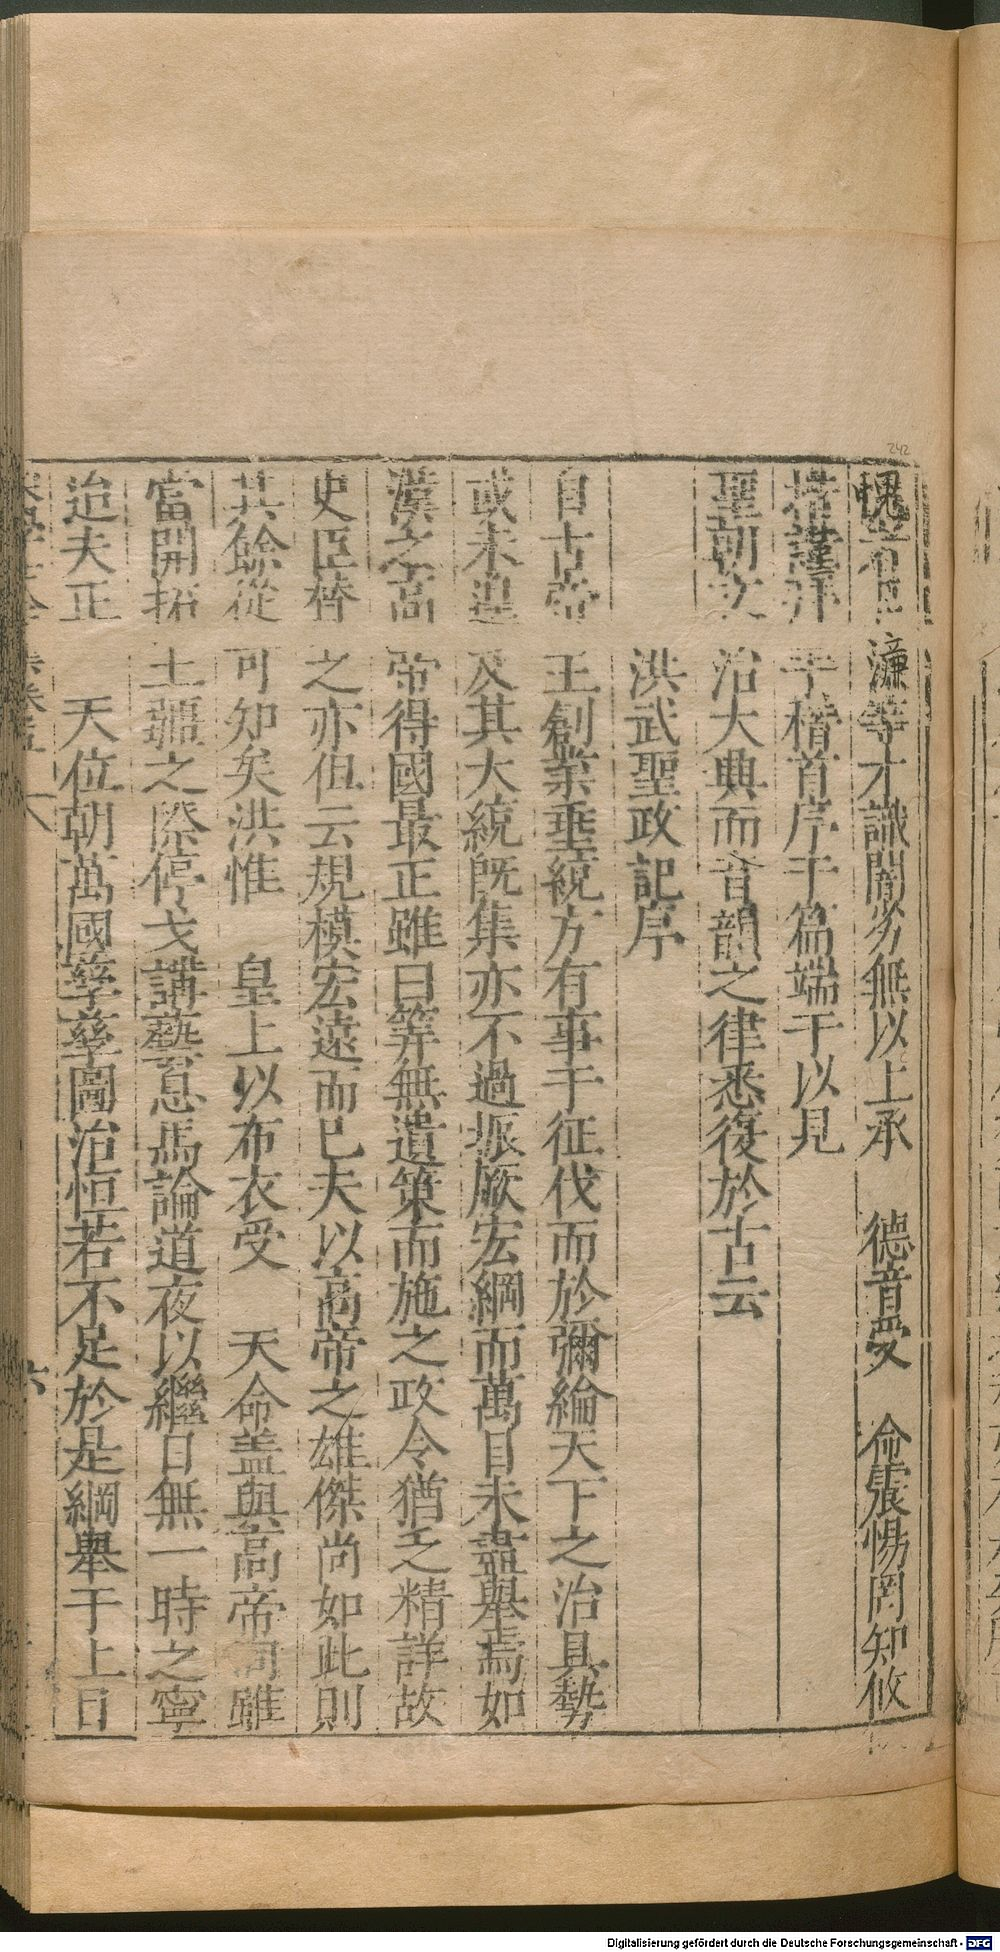 242
愧臣濂等才識闇劣無以上承 德音受 命震惕罔知攸
措謹拜手稽首序于篇端于以見
聖朝文治大典而音韻之律悉復於古云
洪武聖政記序
自古帝王創業垂統方有事于征伐而於彌綸天下之治具勢
或未遑及其大統既集亦不過振厥宏綱而萬目未盡舉焉如
漢之高帝得國最正雖曰筭無遺策而施之政令猶乏精詳故
史臣替之亦伹云規模宏遠而已夫以高帝之雄傑尚如此則
其餘從可知矣洪惟 皇上以布衣受 天命盖與高帝同雖
當開拓土疆之際停戈講藝息馬論道夜以繼日無一時之寧
迨夫正 天位朝萬國孳孳圖治恒若不足於是綱舉于上目
六
Digitalisierung gefördert durch die Deutsche Forschungsgemeinschaft - DFG